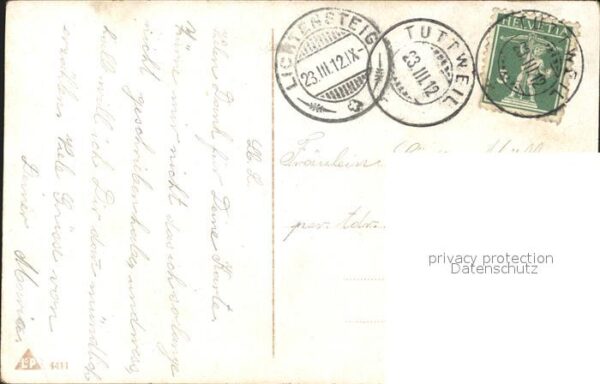 LICHTENSTEIG
23.III.12.IX-
TUTTWEIL
23.III.12
HELVETIA
5
TUTTWEIL
23.III.12
M. L.
Vielen Dank für Deine Karte.
Zürne mir nicht das ich so lange
nicht geschrieben habe,
will ich Dir dann mündlich
erzählen. Viele Grüsse von
Deiner Maria.
Fräulein
per. Adr.
privacy protection
Datenschutz
6411